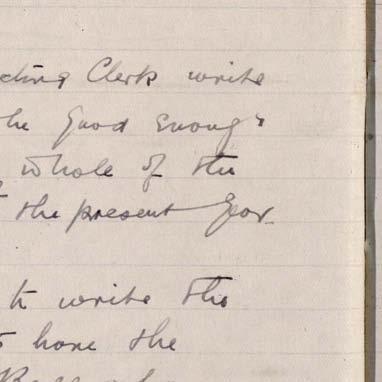 cting Clerk write
he good enough
whole of the
the present year.
to write the
have the